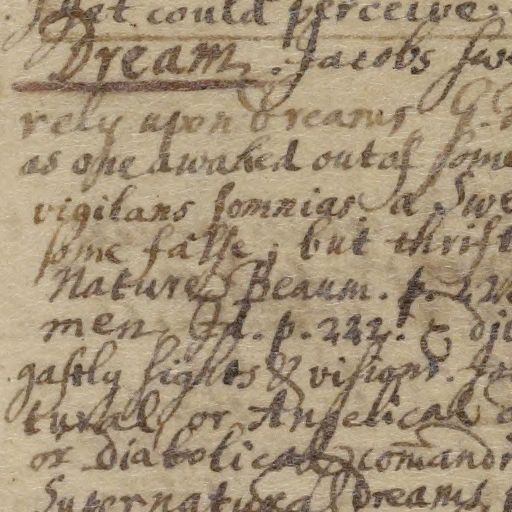 yet could perceive.
Dream. Jacobs swe
rely upon dreams G.
as one awaked out of some
vigilans somnias a Swe
some false; but thrift
Nature Beaum. p. 22
men Id. p. 222. &
gastly sights & visions.
tural, or Angelical
or diabolical comandi
Supernatural Dreams